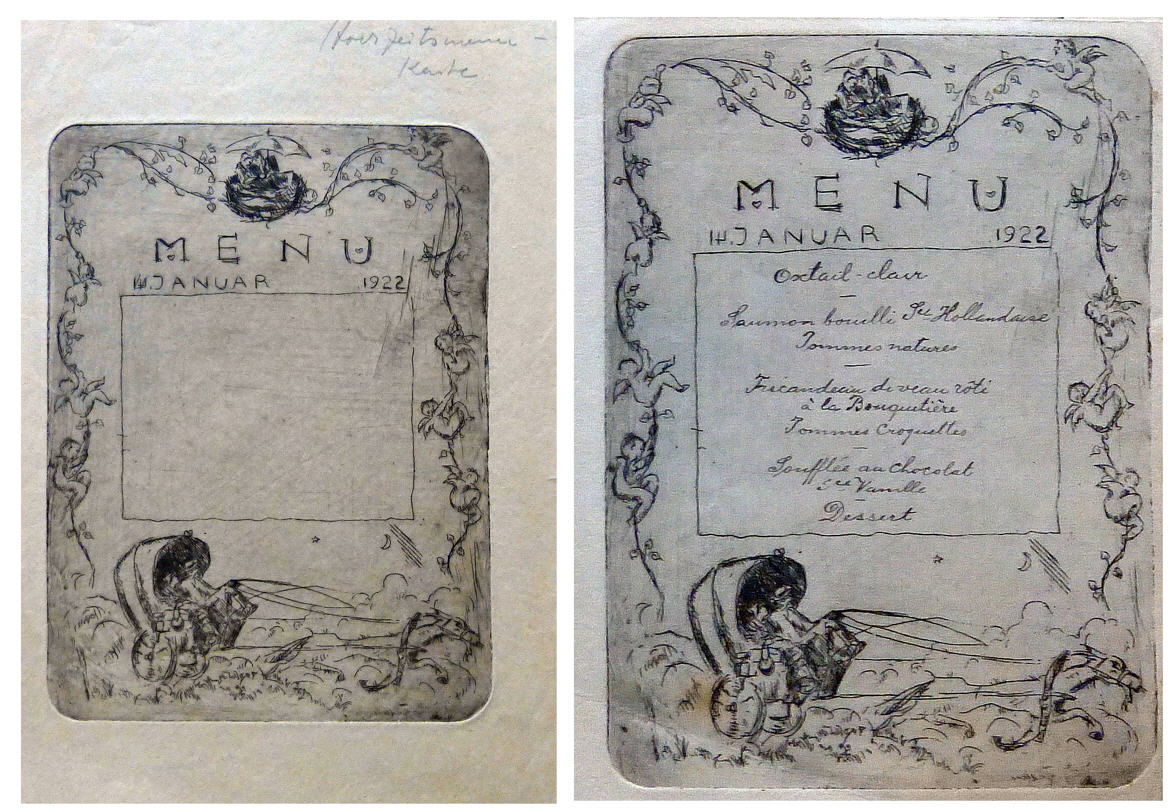 Hochzeitsmenu -
Karte
MENU
14. JANUAR 1922
MENU
14. JANUAR 1922
Oxtail-clair
Saumon bouilli Sce Hollandaise
Pommes natures
Fricandeau de veau rôti
à la Bouquetière
Pommes Croquettes
Soufflée au Chocolat
Sce Vanille
Dessert